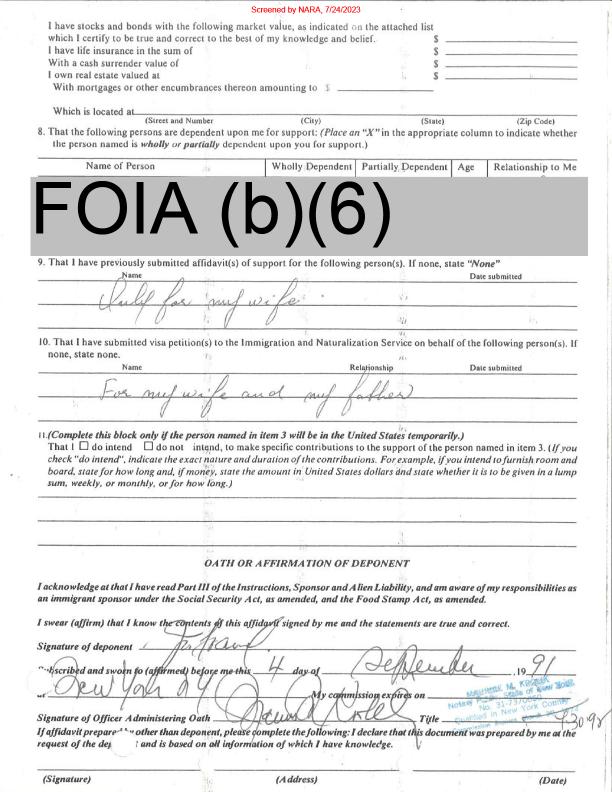 Screened by NARA, 7/24/2023
I have stocks and bonds with the following market value, as indicated on the attached list
which I certify to be true and correct to the best of my knowledge and belief. $
I have life insurance in the sum of $
With a cash surrender value of $
I own real estate valued at $
With mortgages or other encumbrances thereon amounting to $
Which is located at
(Street and Number) (City) (State) (Zip Code)
8. That the following persons are dependent upon me for support: (Place an "X" in the appropriate column to indicate whether
the person named is wholly or partially dependent upon you for support.)
Name of Person Wholly Dependent Partially Dependent Age Relationship to Me
FOIA (b)(6)
9. That I have previously submitted affidavit(s) of support for the following person(s). If none, state "None"
Name Date submitted
Only for my wife
10. That I have submitted visa petition(s) to the Immigration and Naturalization Service on behalf of the following person(s). If
none, state none.
Name Relationship Date submitted
For my wife and my father
11. (Complete this block only if the person named in item 3 will be in the United States temporarily.)
That I ☐ do intend ☐ do not intend, to make specific contributions to the support of the person named in item 3. (If you
check "do intend", indicate the exact nature and duration of the contributions. For example, if you intend to furnish room and
board, state for how long and, if money, state the amount in United States dollars and state whether it is to be given in a lump
sum, weekly, or monthly, or for how long.)
OATH OR AFFIRMATION OF DEPONENT
I acknowledge at that I have read Part III of the Instructions, Sponsor and Alien Liability, and am aware of my responsibilities as
an immigrant sponsor under the Social Security Act, as amended, and the Food Stamp Act, as amended.
I swear (affirm) that I know the contents of this affidavit signed by me and the statements are true and correct.
Signature of deponent
Subscribed and sworn to (affirmed) before me this 4 day of September , 19 91
at New York NY My commission expires on
Notary Public, State of New York
Qualified in New York County
Signature of Officer Administering Oath Title
If affidavit prepared by other than deponent, please complete the following: I declare that this document was prepared by me at the
request of the dep and is based on all information of which I have knowledge.
(Signature) (Address) (Date)